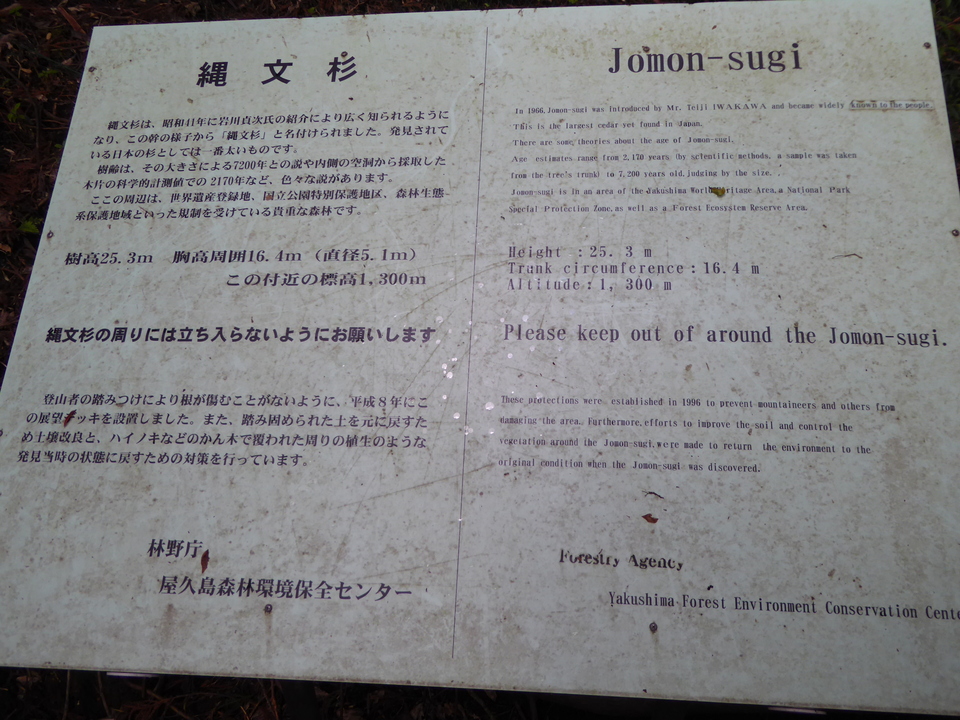 縄文杉
縄文杉は、昭和41年に岩川貞次氏の紹介により広く知られるように
なり、この幹の様子から「縄文杉」と名付けられました。発見されて
いる日本の杉としては一番太いものです。
樹齢は、その大きさによる7200年との説や内側の空洞から採取した
木片の科学的計測値での2170年など、色々な説があります。
ここの周辺は、世界遺産登録地、国立公園特別保護地区、森林生態
系保護地域といった規制を受けている貴重な森林です。
樹高25.3m 胸高周囲16.4m（直径5.1m）
この付近の標高1,300m
縄文杉の周りには立ち入らないようにお願いします
登山者の踏みつけにより根が傷むことがないように、平成8年にこ
の展望デッキを設置しました。また、踏み固められた土を元に戻すた
め土壌改良と、ハイノキなどのかん木で覆われた周りの植生のような
発見当時の状態に戻すための対策を行っています。
林野庁
屋久島森林環境保全センター
Jomon-sugi
In 1966, Jomon-sugi was introduced by Mr. Teiji IWAKAWA and became widely known to the people.
This is the largest cedar yet found in Japan.
There are some theories about the age of Jomon-sugi.
Age estimates range from 2,170 years (by scientific methods, a sample was taken
from the tree's trunk) to 7,200 years old, judging by the size.
Jomon-sugi is in an area of the Yakushima World Heritage Area, a National Park
Special Protection Zone, as well as a Forest Ecosystem Reserve Area.
Height :25. 3 m
Trunk circumference:16.4 m
Altitude:1, 300 m
Please keep out of around the Jomon-sugi.
These protections were established in 1996 to prevent mountaineers and others from
damaging the area. Furthermore, efforts to improve the soil and control the
vegetation around the Jomon-sugi, were made to return the environment to the
original condition when the Jomon-sugi was discovered.
Forestry Agency
Yakushima Forest Environment Conservation Cente